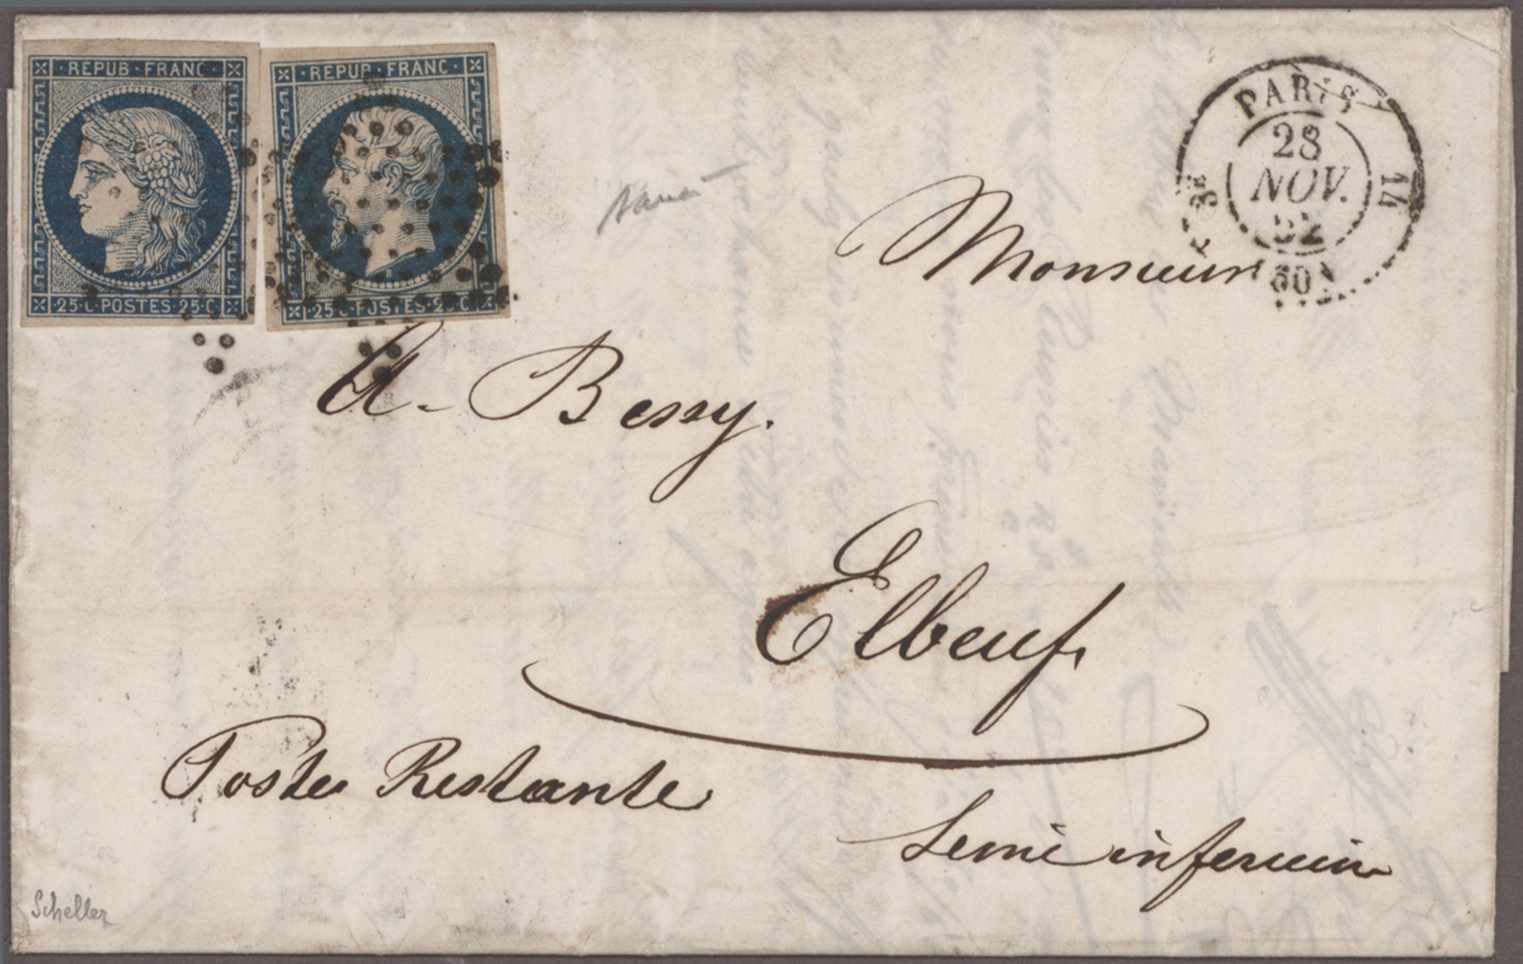 REPUB·FRANC·
25·C·POSTES·25·C·
·REPUB·FRANC·
·25·C·POSTES·25·C·
PARIS
28
NOV.
52
(60)
Monsieur
A. Bessy.
Elbeuf.
Poste Restante
Seine inférieure
Scheller